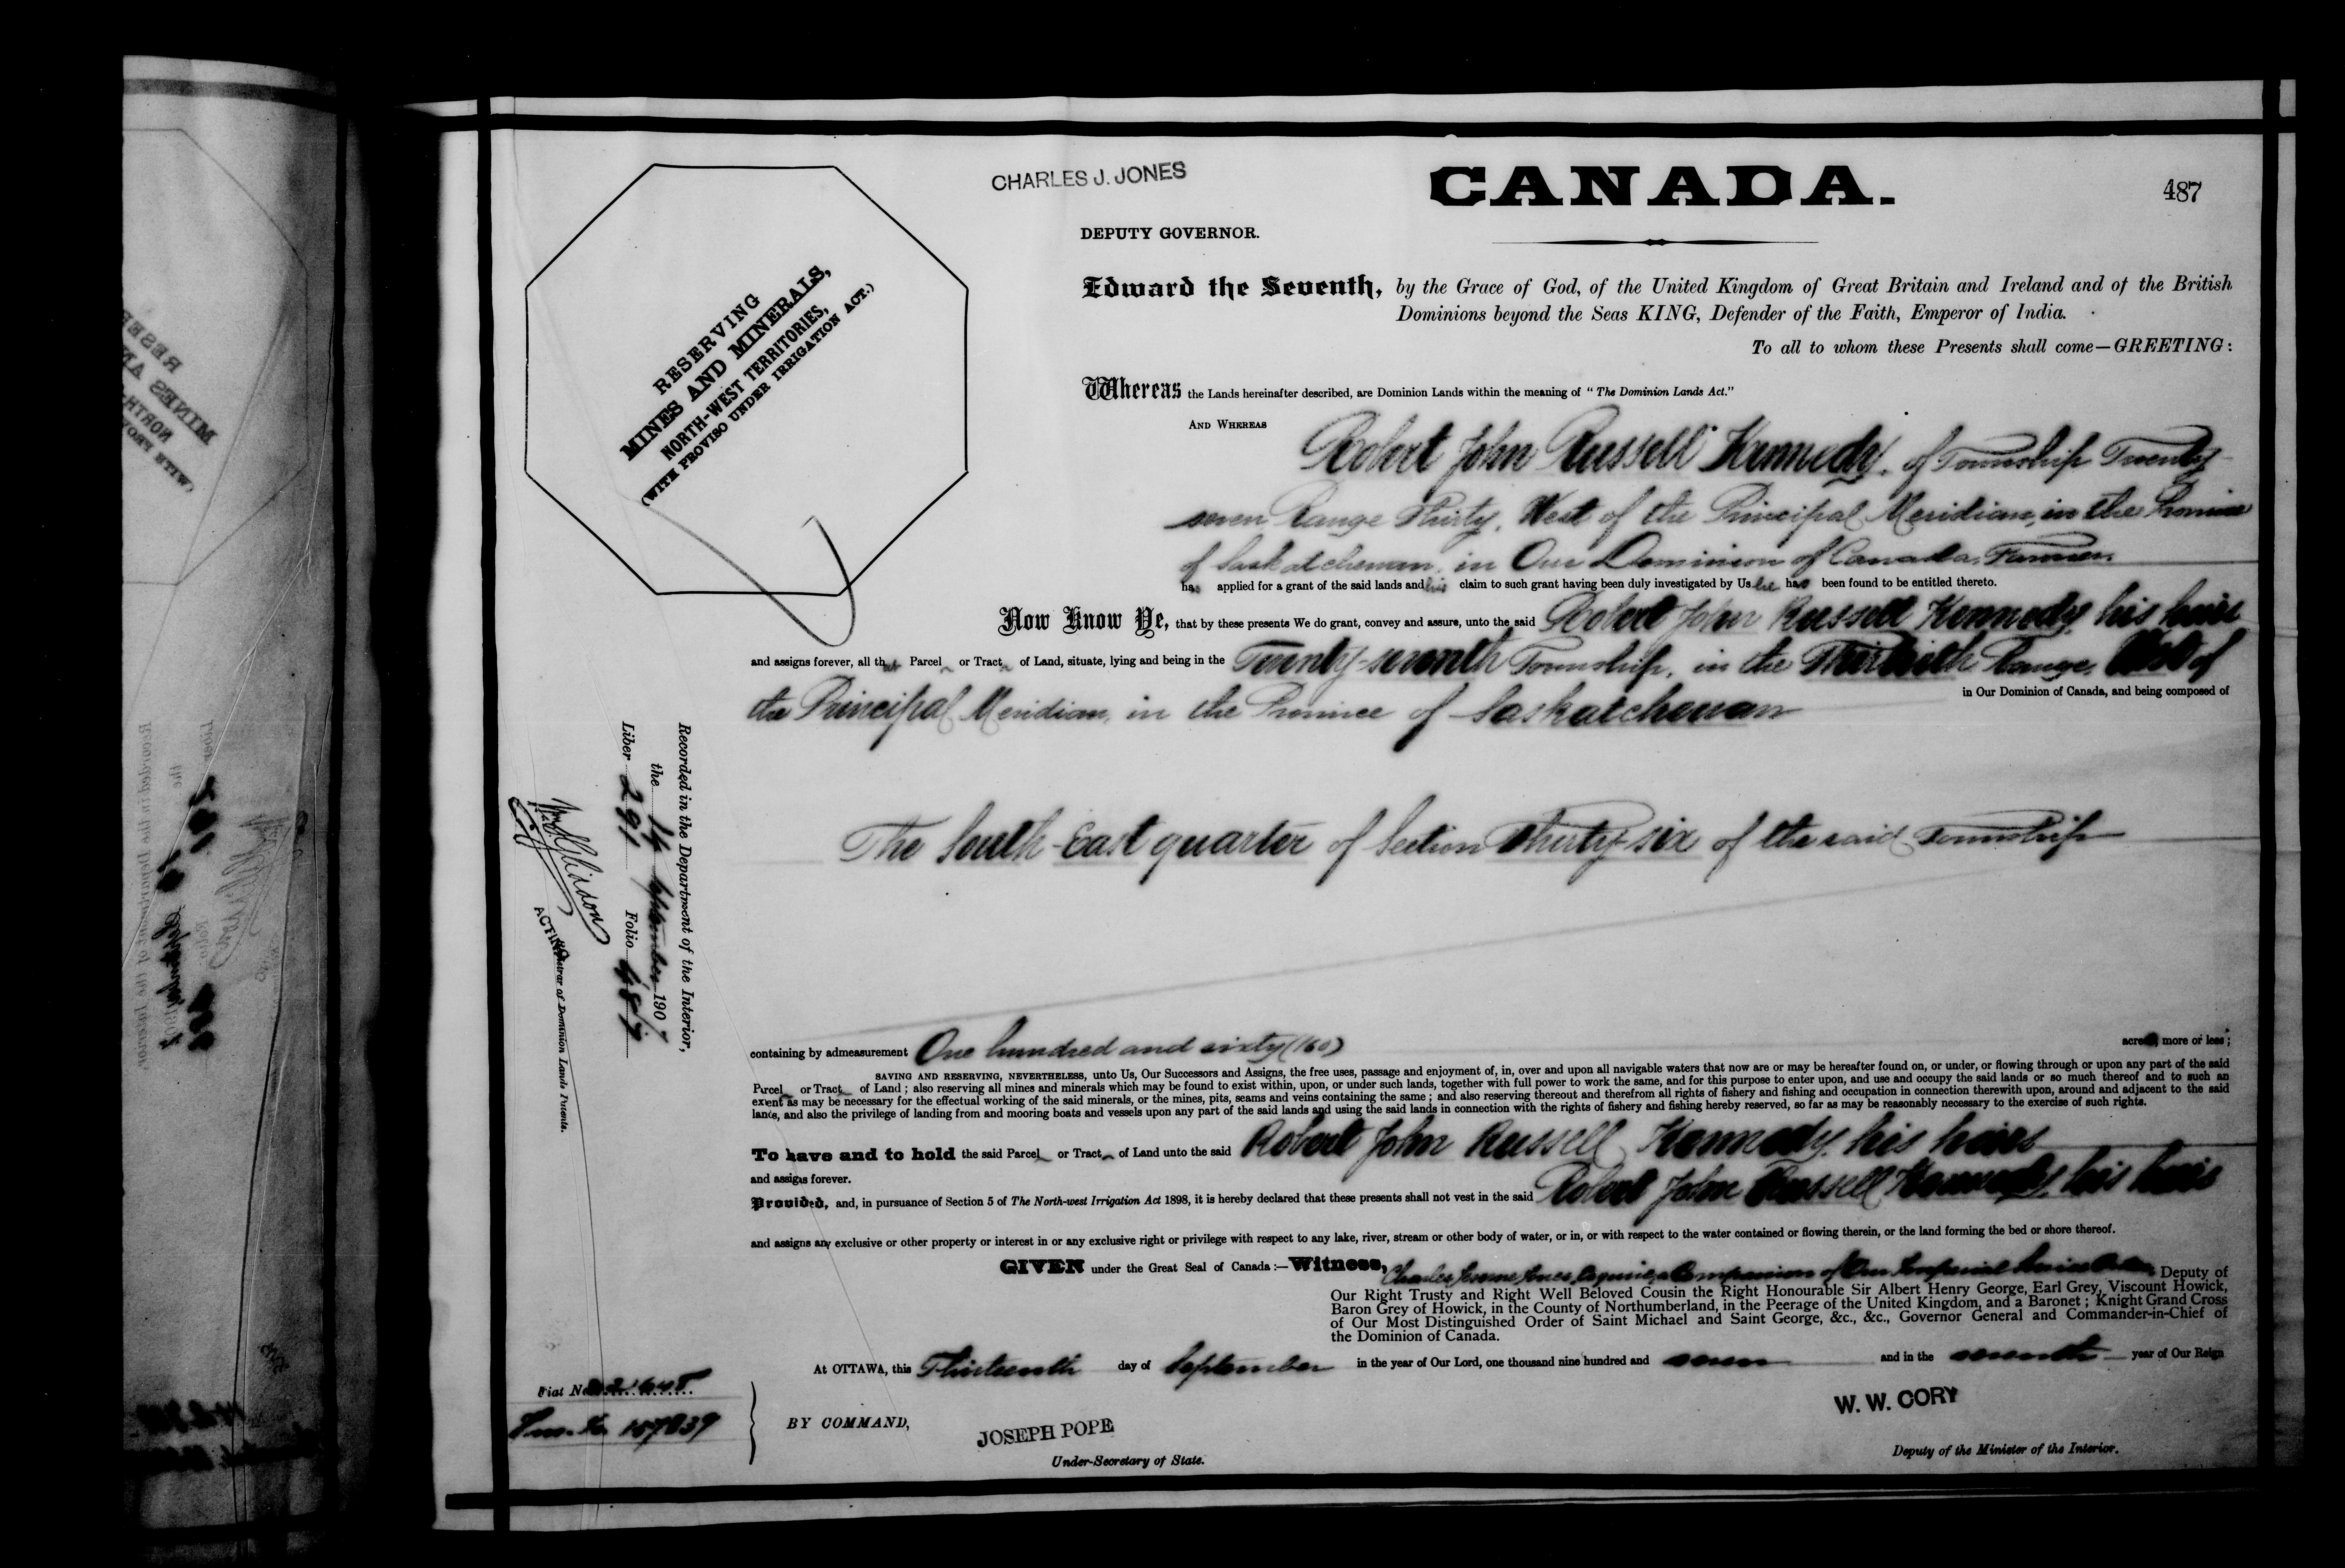 CHARLES J. JONES
CANADA.
487
DEPUTY GOVERNOR.
RESERVING
MINES AND MINERALS,
NORTH-WEST TERRITORIES,
(WITH PROVISO UNDER IRRIGATION ACT.)
Edward the Seventh, by the Grace of God, of the United Kingdom of Great Britain and Ireland and of the British
Dominions beyond the Seas KING, Defender of the Faith, Emperor of India.
To all to whom these Presents shall come—GREETING:
Whereas the Lands hereinafter described, are Dominion Lands within the meaning of "The Dominion Lands Act."
AND WHEREAS Robert John Russell Kennedy, of Township Twenty-
seven Range Thirty, West of the Principal Meridian, in the Province
of Saskatchewan, in Our Dominion of Canada, Farmer,
has applied for a grant of the said lands and his claim to such grant having been duly investigated by Us he has been found to be entitled thereto.
Now Know Ye, that by these presents We do grant, convey and assure, unto the said Robert John Russell Kennedy, his heirs
and assigns forever, all that Parcel or Tract of Land, situate, lying and being in the Twenty-seventh Township, in the Thirtieth Range, West of
the Principal Meridian, in the Province of Saskatchewan in Our Dominion of Canada, and being composed of
The South-East quarter of Section Thirty-six of the said Township
containing by admeasurement One hundred and sixty (160) acres, more or less;
SAVING AND RESERVING, NEVERTHELESS, unto Us, Our Successors and Assigns, the free uses, passage and enjoyment of, in, over and upon all navigable waters that now are or may be hereafter found on, or under, or flowing through or upon any part of the said
Parcel or Tract of Land; also reserving all mines and minerals which may be found to exist within, upon, or under such lands, together with full power to work the same, and for this purpose to enter upon, and use and occupy the said lands or so much thereof and to such an
extent as may be necessary for the effectual working of the said minerals, or the mines, pits, seams and veins containing the same; and also reserving thereout and therefrom all rights of fishery and fishing and occupation in connection therewith upon, around and adjacent to the said
lands, and also the privilege of landing from and mooring boats and vessels upon any part of the said lands and using the said lands in connection with the rights of fishery and fishing hereby reserved, so far as may be reasonably necessary to the exercise of such rights.
To have and to hold the said Parcel or Tract of Land unto the said Robert John Russell Kennedy, his heirs
and assigns forever.
Provided, and, in pursuance of Section 5 of The North-west Irrigation Act 1898, it is hereby declared that these presents shall not vest in the said Robert John Russell Kennedy, his heirs
and assigns any exclusive or other property or interest in or any exclusive right or privilege with respect to any lake, river, stream or other body of water, or in, or with respect to the water contained or flowing therein, or the land forming the bed or shore thereof.
GIVEN under the Great Seal of Canada:—Witness, Charles Jerome Jones, Esquire, a Companion of Our Imperial Service Order, Deputy of
Our Right Trusty and Right Well Beloved Cousin the Right Honourable Sir Albert Henry George, Earl Grey, Viscount Howick,
Baron Grey of Howick, in the County of Northumberland, in the Peerage of the United Kingdom, and a Baronet; Knight Grand Cross
of Our Most Distinguished Order of Saint Michael and Saint George, &c., &c., Governor General and Commander-in-Chief of
the Dominion of Canada.
At OTTAWA, this Thirteenth day of September in the year of Our Lord, one thousand nine hundred and seven and in the seventh year of Our Reign
BY COMMAND,
JOSEPH POPE
Under-Secretary of State.
W. W. CORY
Deputy of the Minister of the Interior.
Recorded in the Department of the Interior,
the 19 September 1907
Liber 291 Folio 487
ACTING Registrar of Dominion Lands Patents.
Fiat No.
157839